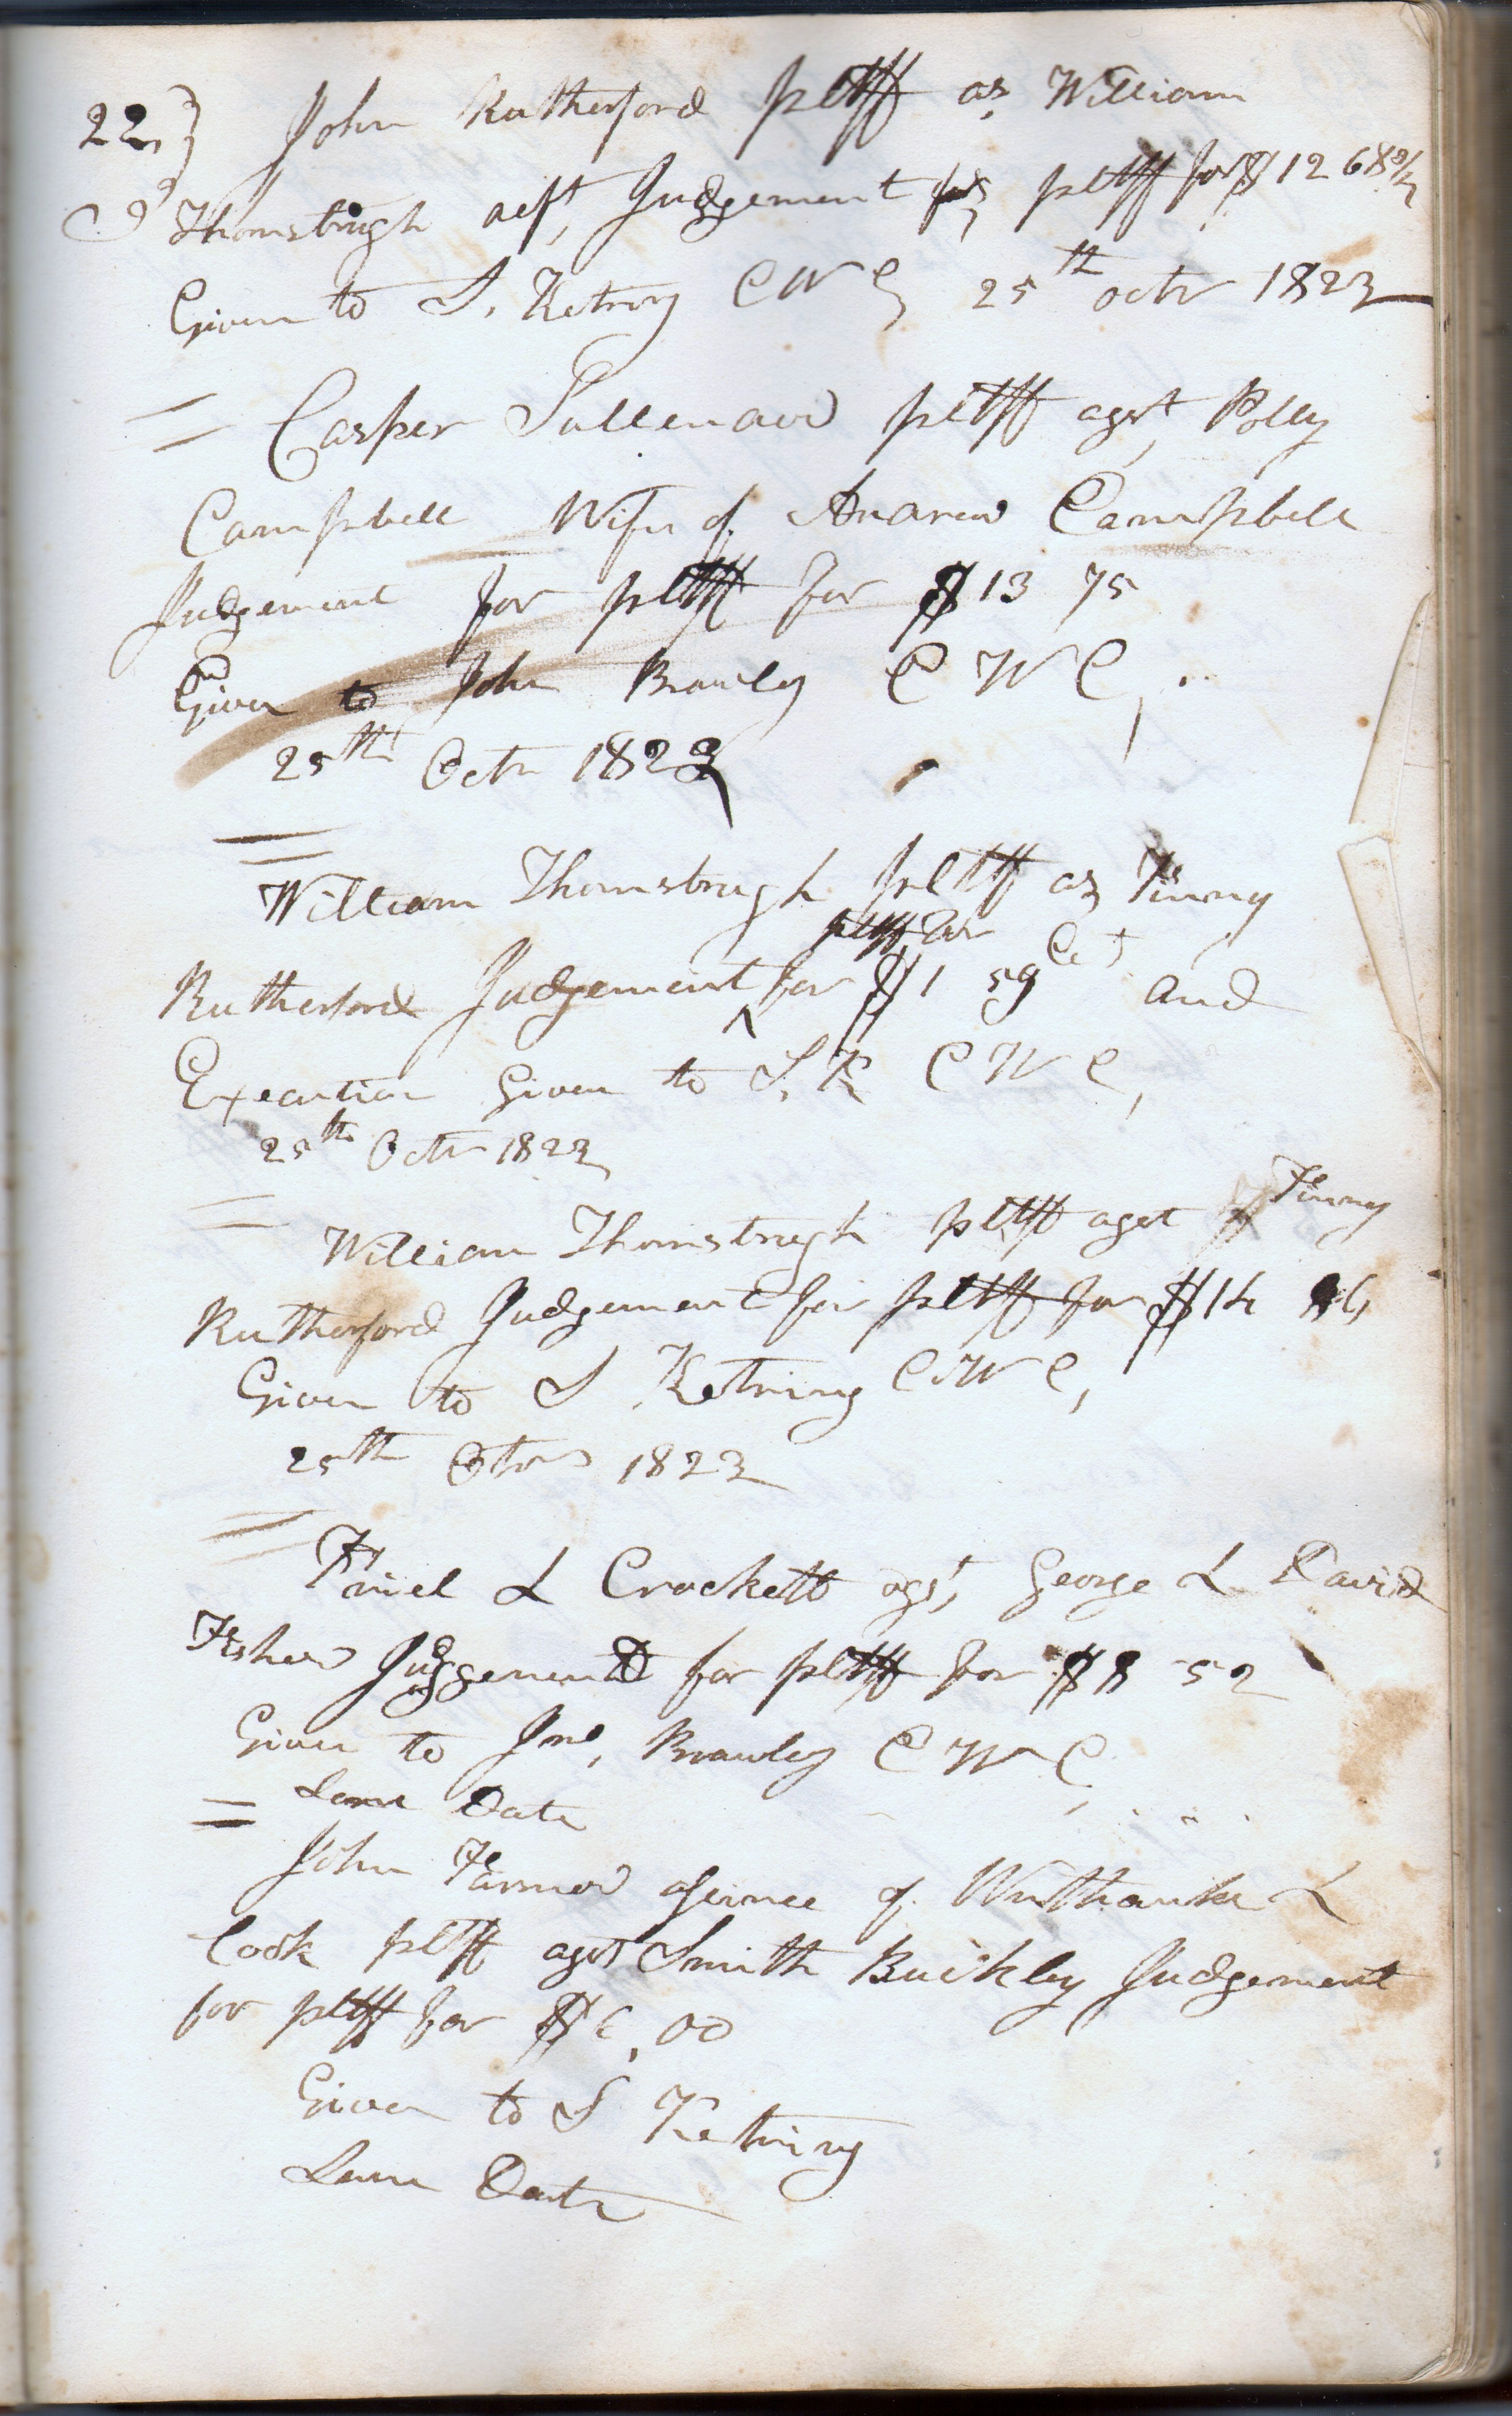 22,} John Rutherford pltff as William
Thomstrugh deft, Judgement for pltff for $12 68¾
Given to S. Ketring C W C, 25th octr 1823
= Casper Sullenard pltff agst, Polly
Campbell Wife of Andrew Campbell
Judgement for pltff for $13 75
Given to John Brawley C W C,
25th Octr 1823
=
William Thomstrugh pltff as Finny
pltff for
Rutherford Judgement ^ for $1 59 Cet and
Execution Given to S. K C W C,
25th Octr 1823
=
William Thomstrugh pltff agst Finny
Rutherford Judgement for pltff for $14
Given to S Ketring C W C,
25th Otr 1823
=
Friel & Crockett agst, George & David
Fisher Judgement for pltff for $8 52
Given to Jno, Brawley C W C
= Same Date
John Farmer asinee of &
Cook pltff agst Smith Buckley Judgement
for pltff for $6,00
Given to S Ketring
Same Date